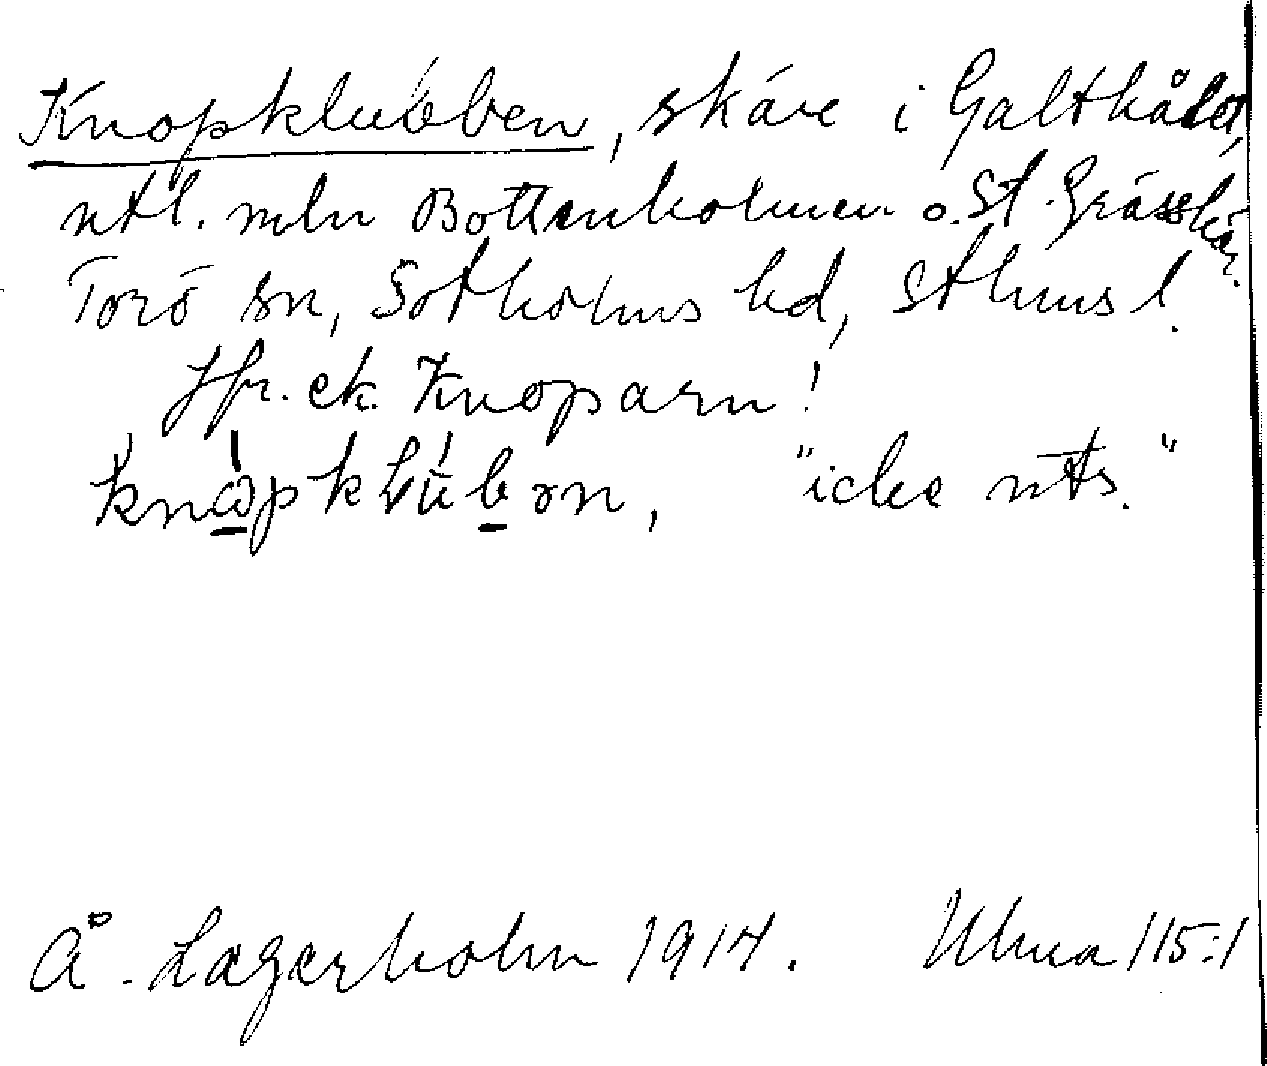 Knopklubben, skäre i Galthålet,
ntl. mln Bottenholmen o. St. Grässkär.
Torö sn, Sotholms hd, Sthms l.
Jfr. ek. Knoparn!
"icke nts."
Å. Lagerholm 1914. Ulma 115:1